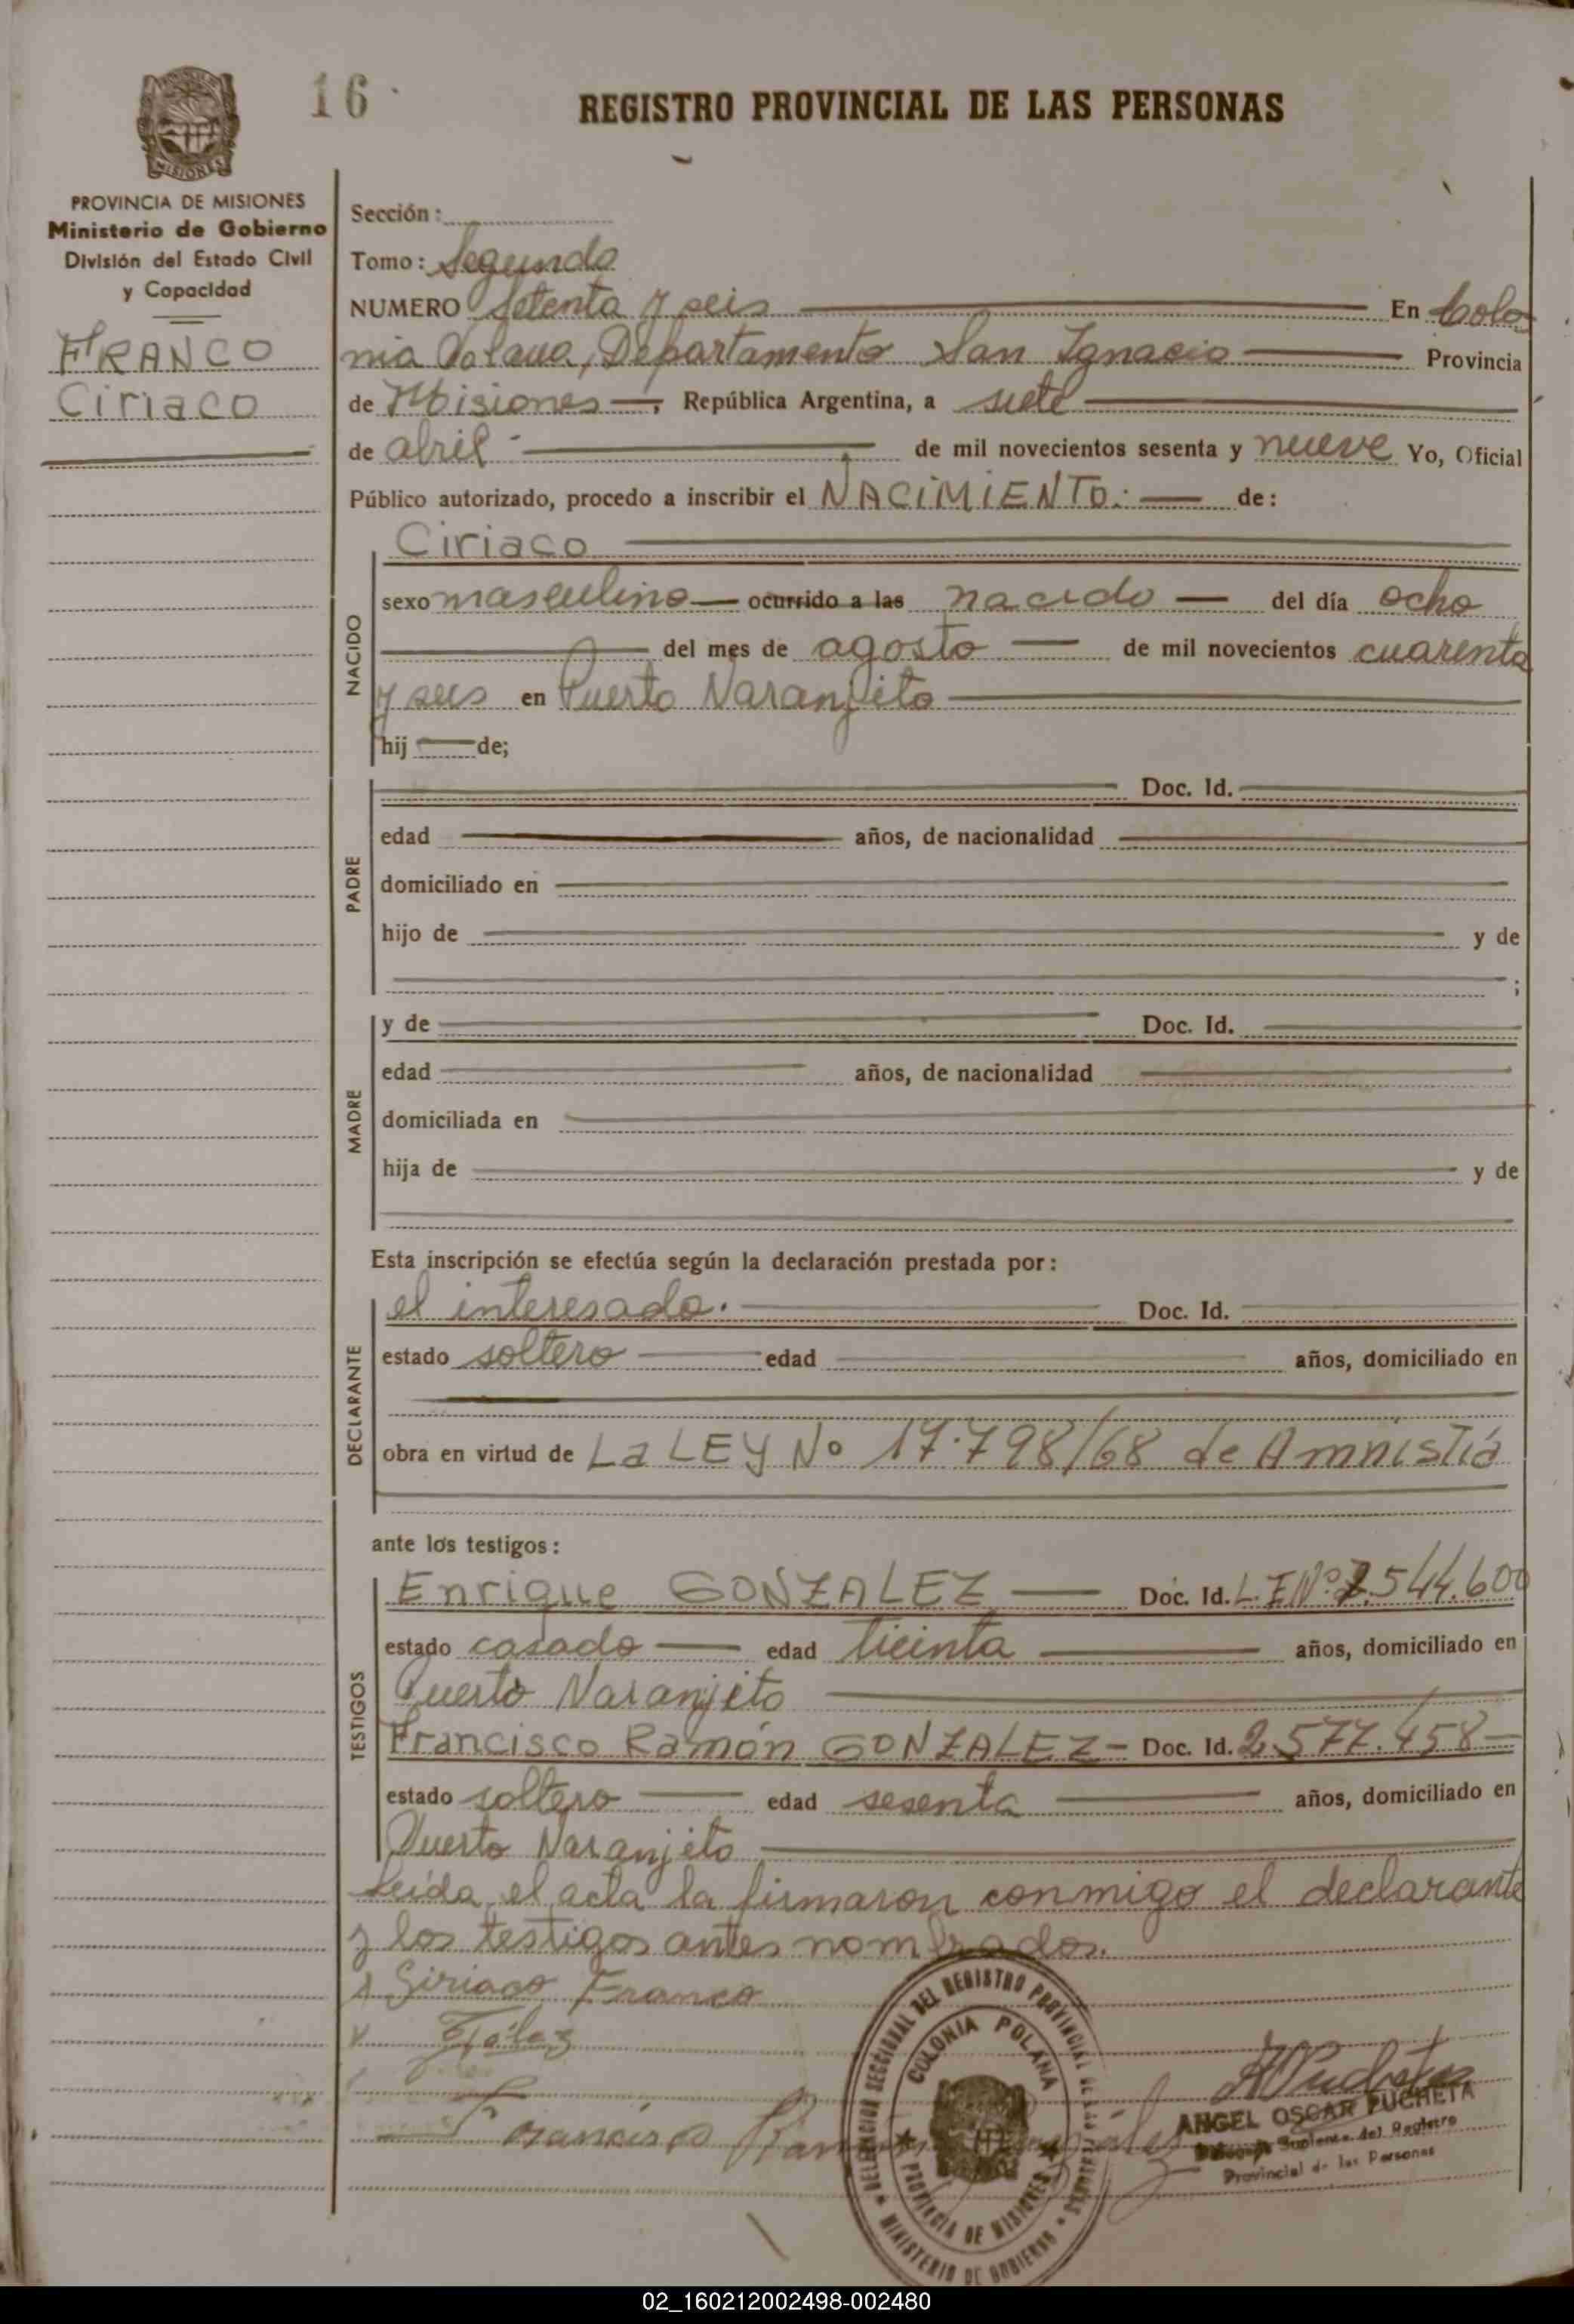 16
REGISTRO PROVINCIAL DE LAS PERSONAS
MISIONES
PROVINCIA DE MISIONES
Ministerio de Gobierno
División del Estado Civil
y Capacidad
FRANCO
Ciriaco
Sección:
Tomo: Segundo
NUMERO Setenta y seis En Colo
nia Polana, Departamento San Ignacio Provincia
de Misiones, República Argentina, a siete
de abril de mil novecientos sesenta y nueve Yo, Oficial
Público autorizado, procedo a inscribir el NACIMIENTO: de:
NACIDO
Ciriaco
sexo masculino ocurrido a las nacido del día ocho
del mes de agosto de mil novecientos cuarenta
y seis en Puerto Naranjito
hij de;
PADRE
Doc. Id.
edad años, de nacionalidad
domiciliado en
hijo de y de
;
MADRE
y de Doc. Id.
edad años, de nacionalidad
domiciliada en
hija de y de
Esta inscripción se efectúa según la declaración prestada por:
DECLARANTE
el interesado. Doc. Id.
estado soltero edad años, domiciliado en
obra en virtud de La LEY No 17.798/68 de Amnistía
ante los testigos:
TESTIGOS
Enrique GONZALEZ Doc. Id. L.E Nº 7.544.600
estado casado edad treinta años, domiciliado en
Puerto Naranjito
Francisco Ramón GONZALEZ - Doc. Id. 2.577.458
estado soltero edad sesenta años, domiciliado en
Puerto Naranjito
Leída el acta la firmaron conmigo el declarante
y los testigos antes nombrados.
Siriaco Franco
Francisco Ramon
DELEGACION SECCIONAL DEL REGISTRO PROVINCIAL DE LAS PERSONAS
COLONIA POLANA
PROVINCIA DE MISIONES
MINISTERIO DE GOBIERNO
ANGEL OSCAR PUCHETA
Delegado Suplente del Registro
Provincial de las Personas
02_160212002498-002480